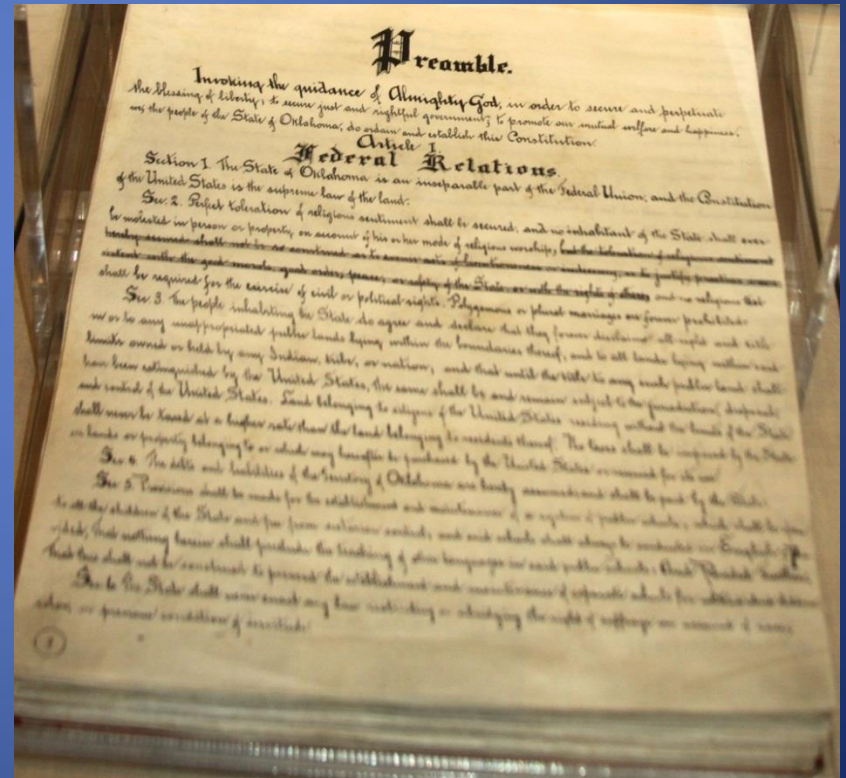 Preamble.
Invoking the guidance of Almighty God, in order to secure and perpetuate
the blessing of liberty; to secure just and rightful government; to promote our mutual welfare and happiness,
we, the people of the State of Oklahoma, do ordain and establish this Constitution.
Article I.
Federal Relations.
Section 1. The State of Oklahoma is an inseparable part of the Federal Union, and the Constitution
of the United States is the supreme law of the land.
Sec. 2. Perfect toleration of religious sentiment shall be secured, and no inhabitant of the State shall ever
be molested in person or property, on account of his or her mode of religious worship, but the toleration of religious sentiment
hereby secured shall not be so construed as to excuse acts of licentiousness or
with the good morals, good order, peace, or safety of the State, or with the rights of others and no religious test
shall be required for the exercise of civil or political rights. Polygamous or plural marriages are forever prohibited.
Sec. 3. The people inhabiting the State do agree and declare that they forever disclaim all right and title
in or to any unappropriated public lands lying within the boundaries thereof, and to all lands lying within said
limits owned or held by any Indian, tribe, or nation; and that until the title to any such public land shall
have been extinguished by the United States, the same shall be and remain subject to the jurisdiction, disposal,
and control of the United States. Land belonging to citizens of the United States residing without the limits of the State
shall never be taxed at a higher rate than the land belonging to residents thereof. No taxes shall be imposed by the State
on lands or property belonging to or which may hereafter be purchased by the United States or reserved for its use.
Sec. 4. The debts and liabilities of the Territory of Oklahoma are hereby assumed, and shall be paid by the State.
Sec. 5. Provisions shall be made for the establishment and maintenance of a system of public schools, which shall be open
to all the children of the State and free from sectarian control; and said schools shall always be conducted in English: Pro-
vided, that nothing herein shall preclude the teaching of other languages in said public schools: And Provided Further,
that this shall not be construed to prevent the establishment and maintenance of separate schools for white and colored children.
Sec. 6. The State shall never enact any law restricting or abridging the right of suffrage on account of race,
color, or previous condition of servitude.
1